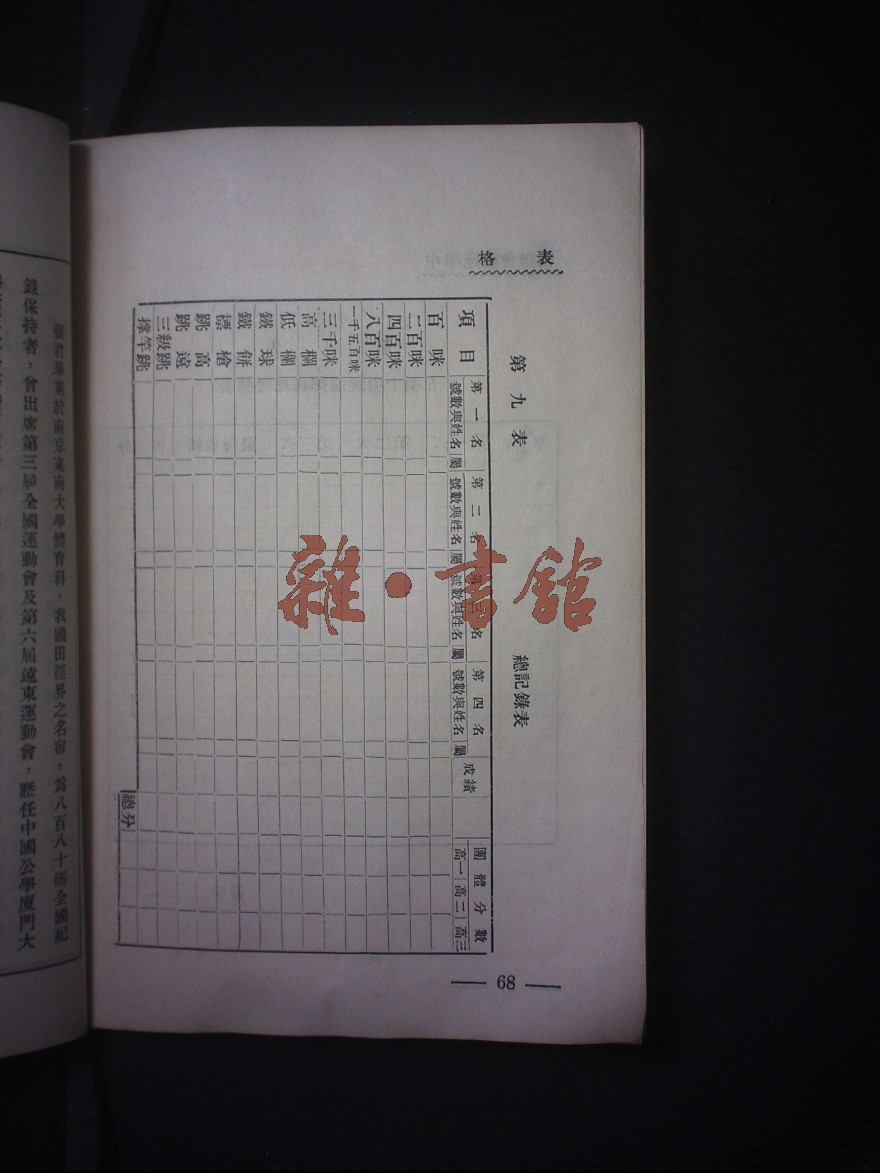 表格
第九表
總記錄表
項目
第一名
第二名
第三名
第四名
成績
團體分數
號數與姓名
屬
號數與姓名
屬
號數與姓名
屬
號數與姓名
屬
高一
高二
高三
百咪
二百咪
四百咪
八百咪
一千五百咪
三千咪
高欄
低欄
鐵球
鐵餅
標槍
跳高
跳遠
三級跳
撐竿跳
總分
68
雜·書館
張君畢業於南京東南大學體育科,我國田徑界之名宿,為八百八十碼全國紀
錄保持者,曾出席第三屆全國運動會及第六屆遠東運動會,歷任中國公學廈門大